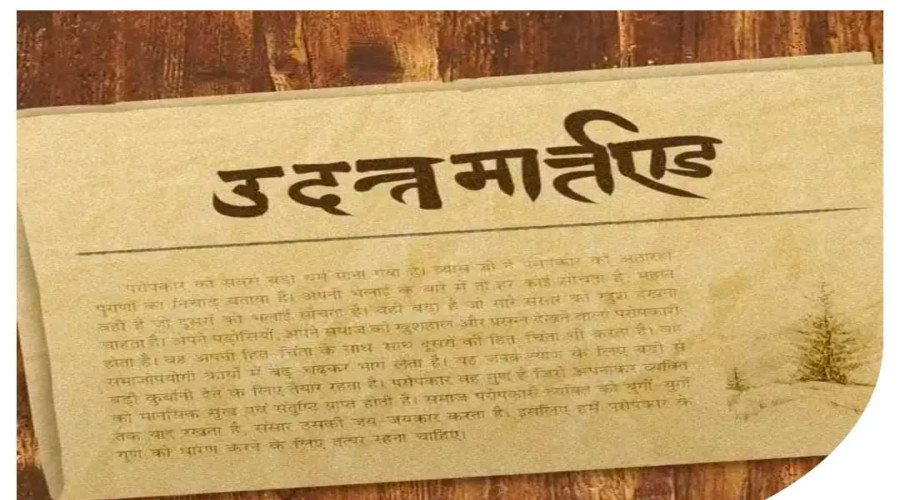 उदन्त मार्त्तण्ड
परोपकार को सबसे बड़ा धर्म माना गया है। व्यास जी ने परोपकार को अठारहों
पुराणों का निचोड़ बताया है। अपनी भलाई के बारे में तो हर कोई सोचता है, महान
वही है जो दूसरों की भलाई सोचता है। वही बड़ा है जो सारे संसार को खुश देखना
चाहता है। अपने पड़ोसियों, अपने समाज को खुशहाल और प्रसन्न देखने वाला परोपकारी
होता है। वह अपनी हित-चिंता के साथ-साथ दूसरों की हित-चिंता भी करता है। वह
समाजोपयोगी कार्यों में बढ़ चढ़कर भाग लेता है। वह के लिए बड़ी से
बड़ी कुर्बानी देने के लिए तैयार रहता है। परोपकार वह गुण है जिसे अपनाकर व्यक्ति
को मानसिक सुख एवं संतुष्टि प्राप्त होती है। समाज परोपकारी व्यक्ति को युगों-युगों
तक याद रखता है, संसार उसकी जय-जयकार करता है। इसलिए हमें परोपकार के
गुण को धारण करने के लिए तत्पर रहना चाहिए।